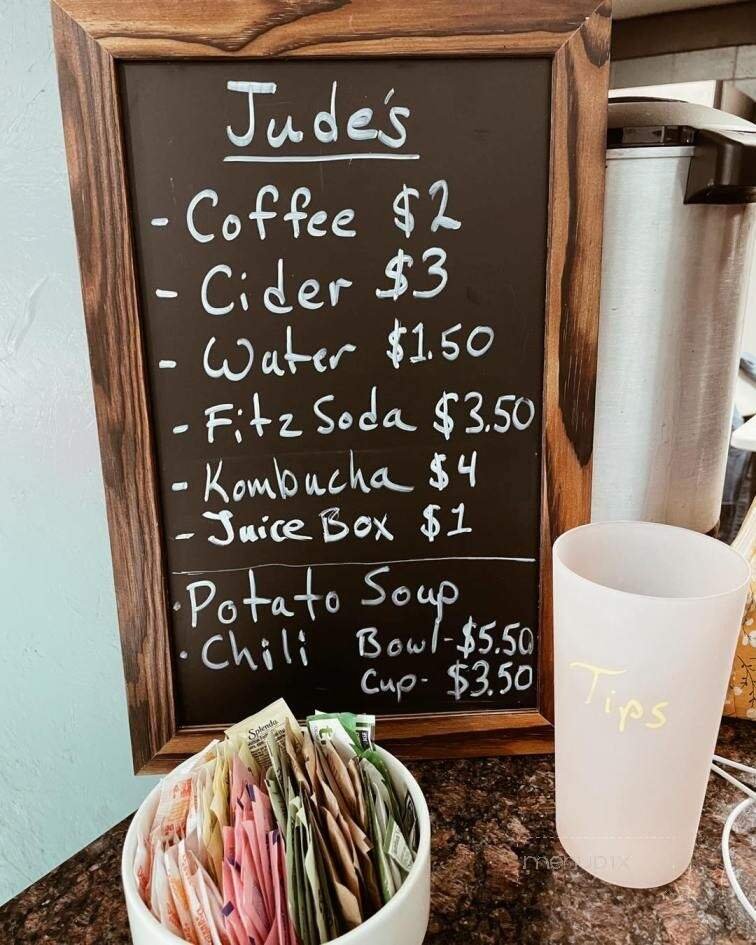 Jude's
- Coffee $2
- Cider $3
- Water $1.50
- Fitz Soda $3.50
- Kombucha $4
- Juice Box $1
· Potato Soup
· Chili Bowl - $5.50
Cup - $3.50
Splenda
Tips
menupix